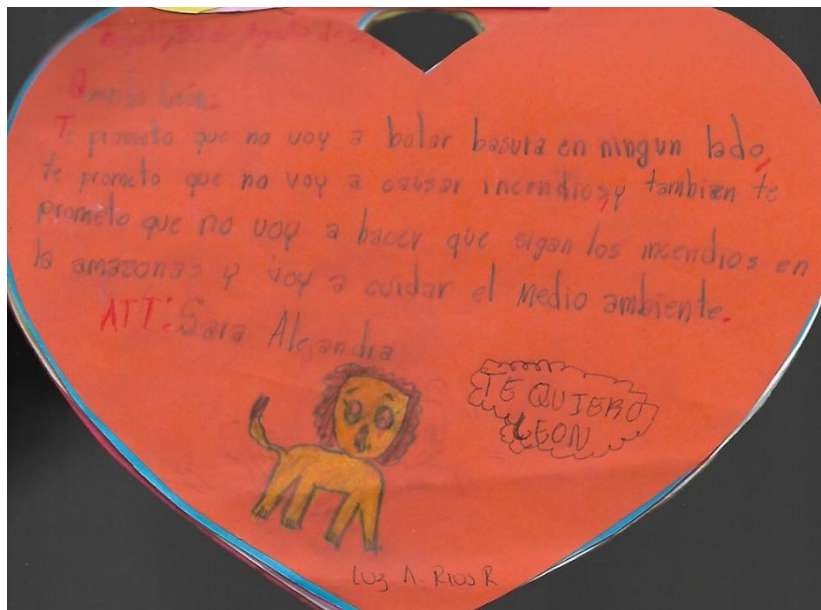 de Agosto de
Querido León.
Te prometo que no voy a botar basura en ningun lado,
te prometo que no voy a causar incendios, y tambien te
prometo que no voy a hacer que sigan los incendios en
la amazonas y voy a cuidar el medio ambiente.
ATT: Sara Alejandra
TE QUIERO
LEON
Luz A. Rios R